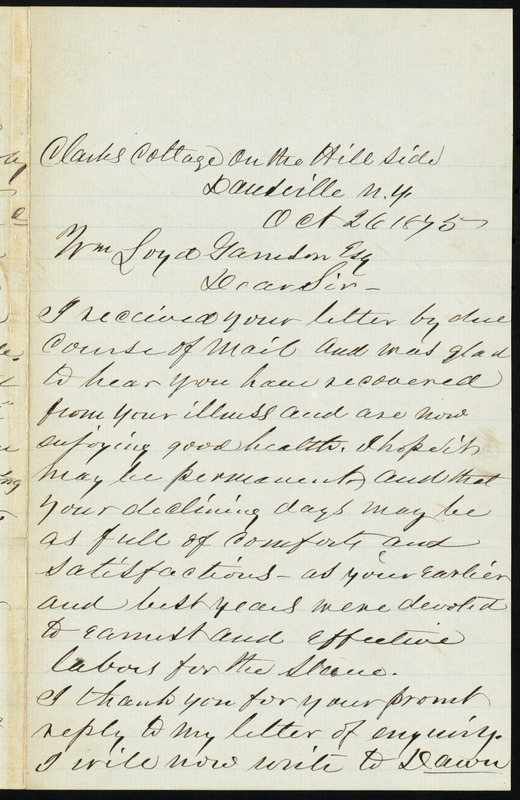 Clarks Cottage on the Hill Side
Dansville N.Y.
Oct 26 1875
Wm Loyd Garrison Esq
Dear Sir -
I received your letter by due
course of mail and was glad
to hear you have recovered
from your illness and are now
enjoying good health. I hope it
may be permanent, and that
your declining days may be
as full of comforts and
satisfactions - as your earlier
and best years were devoted
to earnest and effective
labors for the Slave.
I thank you for your promt
reply to my letter of enquiry.
I will now write to Dawn